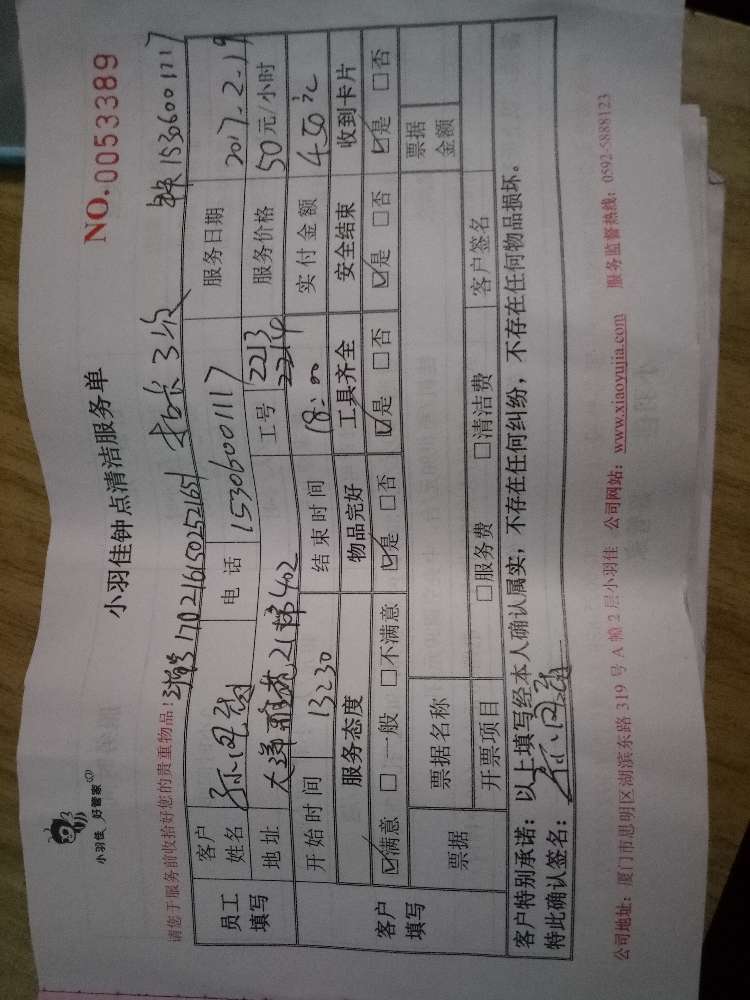 小羽佳 好管家
小羽佳钟点清洁服务单
NO. 0053389
请您于服务前收拾好您的贵重物品！
170216150252165
15306001117
员工填写
客户姓名
电话 15306001117
服务日期 2017-2-19
地址
402
工号 2213 2214
服务价格 50元/小时
开始时间 13:30
结束时间 18:00
实付金额 450元
客户填写
服务态度 物品完好 工具齐全 安全结束 收到卡片
☑满意 □一般 □不满意 ☑是 □否 ☑是 □否 ☑是 □否 ☑是 □否
票据 票据名称 票据金额
开票项目 □服务费 □清洁费 客户签名
客户特别承诺：以上填写经本人确认属实，不存在任何纠纷，不存在任何物品损坏。
特此确认签名：
公司地址：厦门市思明区湖滨东路 319 号 A 幢 2 层小羽佳 公司网站：www.xiaoyujia.com 服务监督热线：0592-5888123